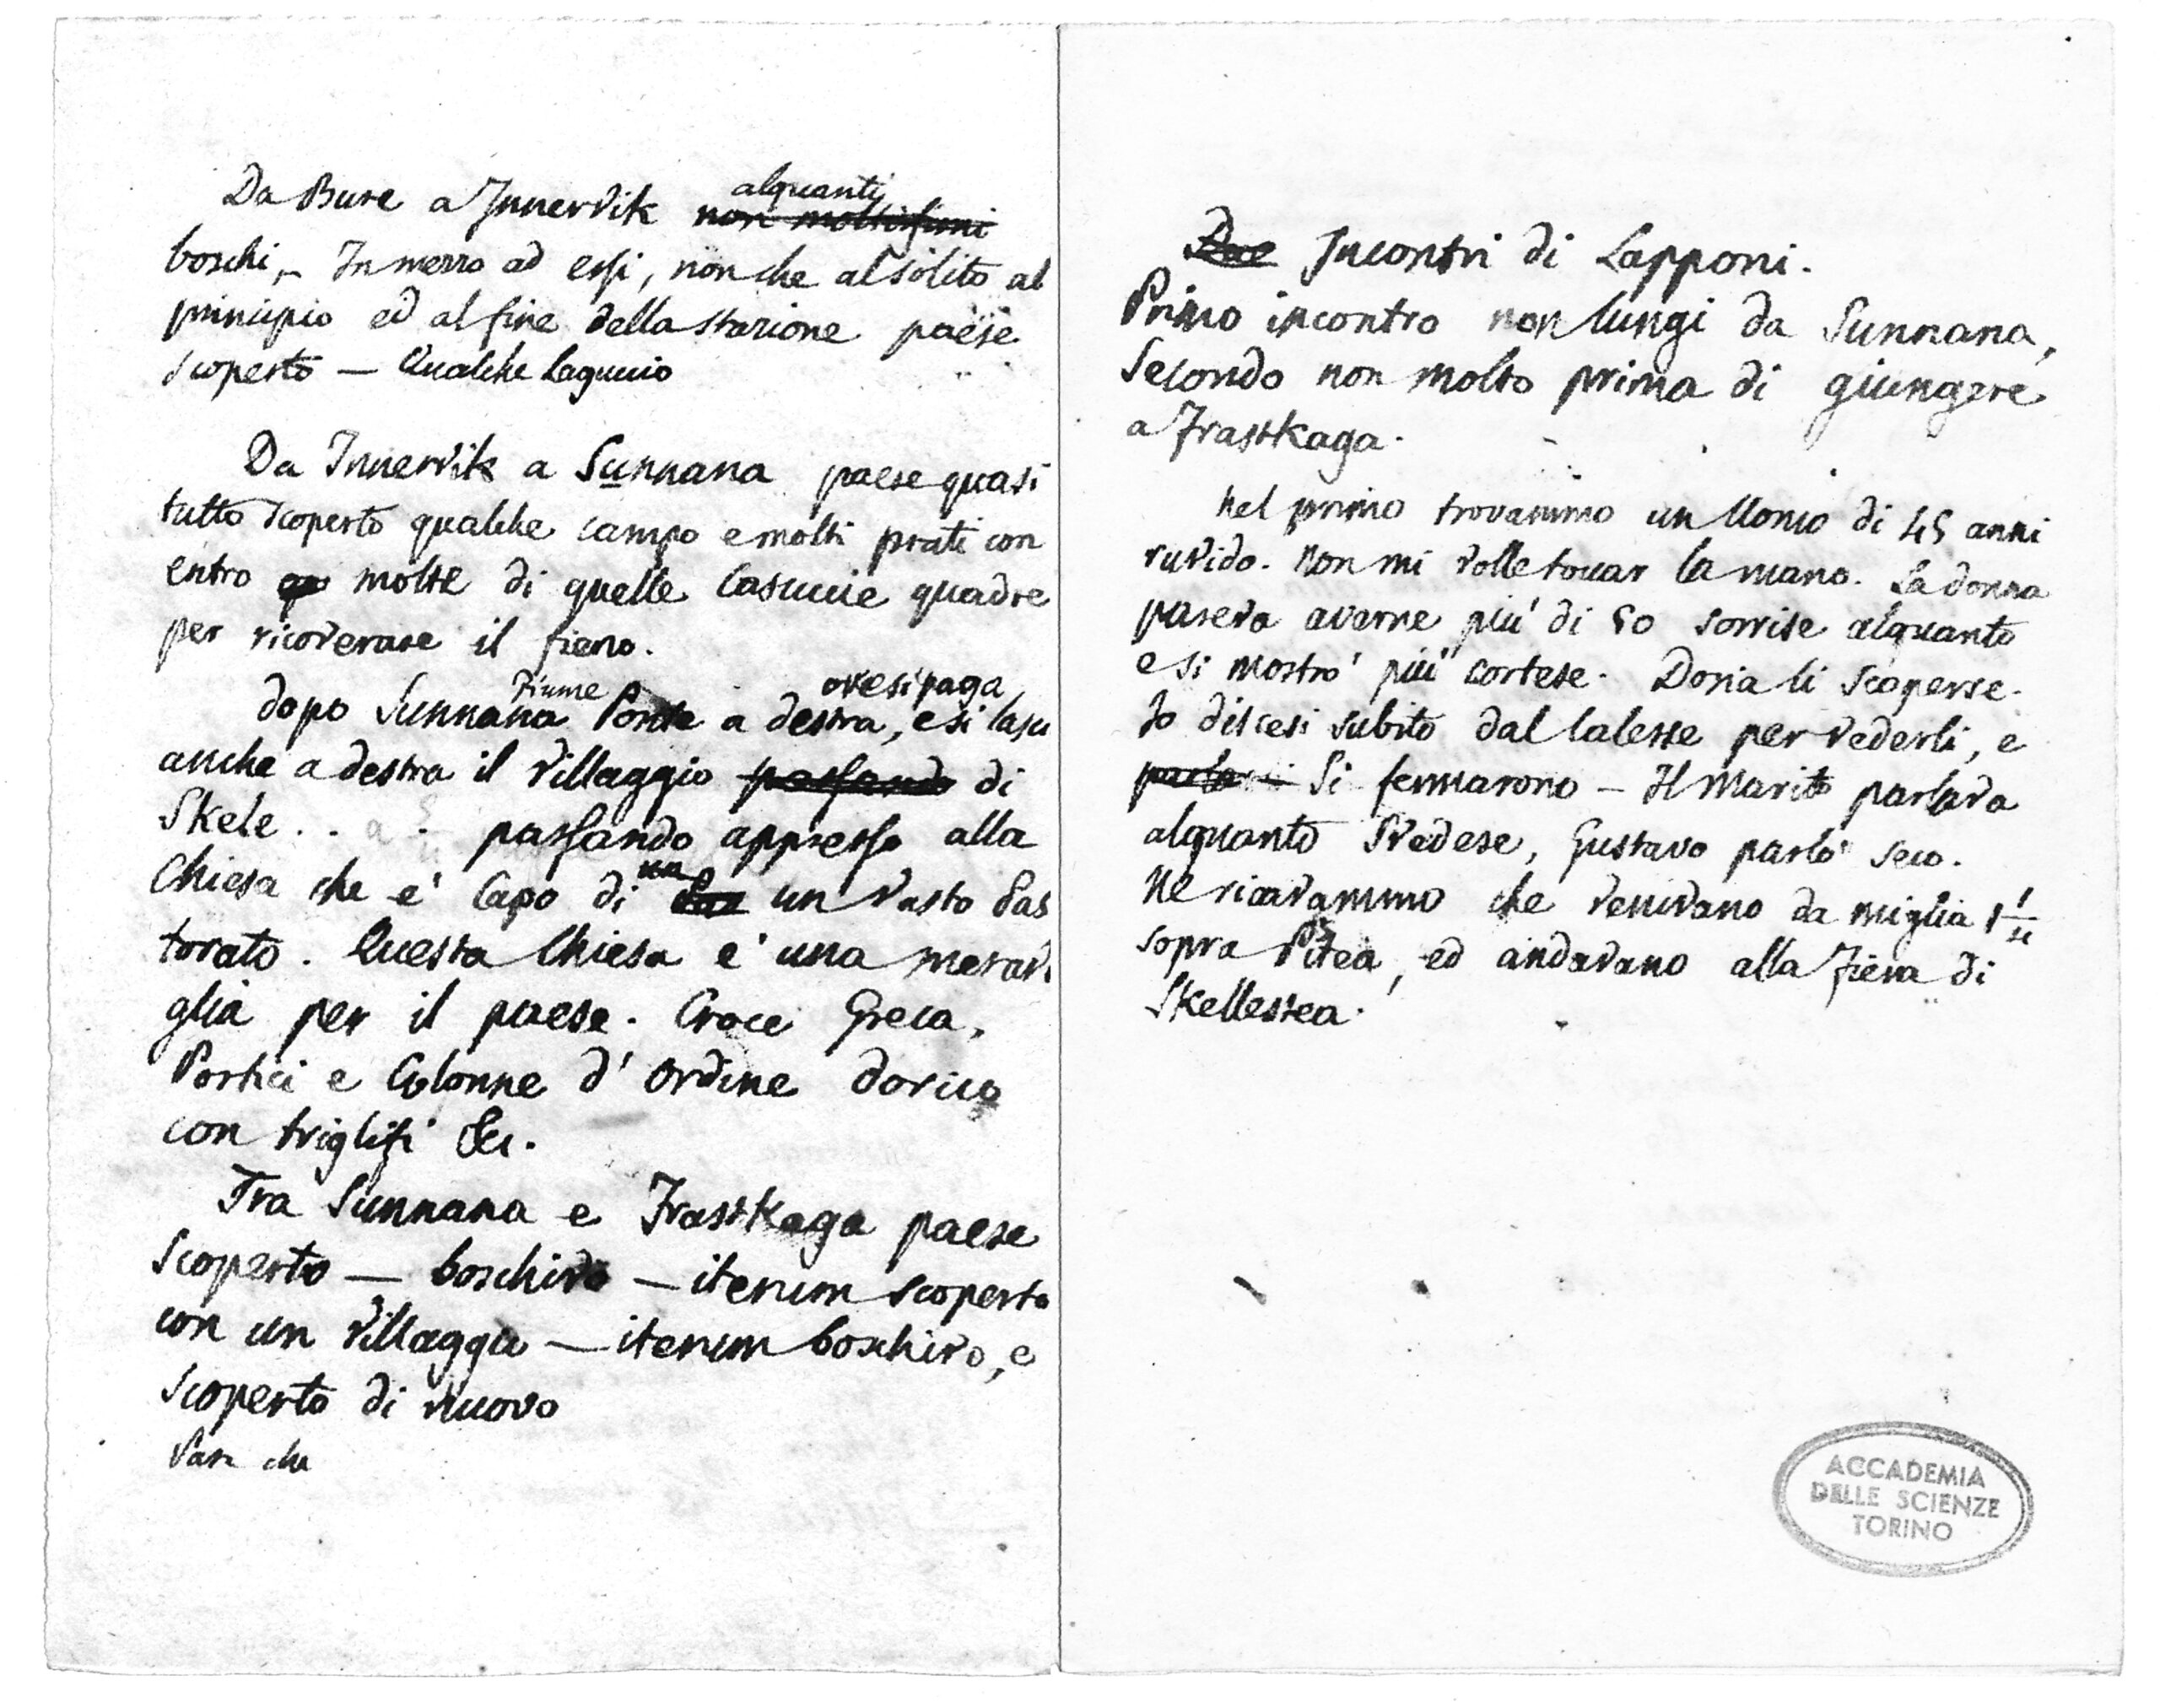 Da Bure a Innervik alquanti
non moltissimi
boschi, - In mezzo ad essi, nonche al solito al
principio ed al fine della stazione paese
scoperto — Qualche laguccio
Da Innervik a Sunnana paese quasi
tutto scoperto qualche campo e molti prati con
entro molte di quelle casuccie quadre
per ricoverare il fieno.
Fiume ove si paga
dopo Sunnana Ponte a destra, e si lasci
anche a destra il villaggio passando di
Skele . . passando appresso alla
Chiesa che e' Capo di un un vasto Pas
torato. Questa Chiesa e' una meravi
glia per il paese. Croce Greca,
Portici e Colonne d'ordine dorico
con triglifi &c.
Tra Sunnana e Frastkaga paese
scoperto — boschivo — iterum scoperto
con un villaggio — iterum boschivo, e
scoperto di nuovo
Par che
Due Incontri di Lapponi.
Primo incontro non lungi da Sunnana,
Secondo non molto prima di giungere
a Frastkaga.
Nel primo trovammo un Uomo di 45 anni
ruvido. Non mi volle toccar la mano. La donna
pareva averne piu' di 50 sorrise alquanto
e si mostro' piu' cortese. Doria li scoperse.
Io discesi subito dal calesse per vederli, e
Si fermarono — Il Marito parlava
alquanto Svedese, Gustavo parlo' seco.
Ne ricavammo che venivano da miglia 1 1/2
sopra Pitea, ed andavano alla fiera di
Skelleftea.
ACCADEMIA
DELLE SCIENZE
TORINO